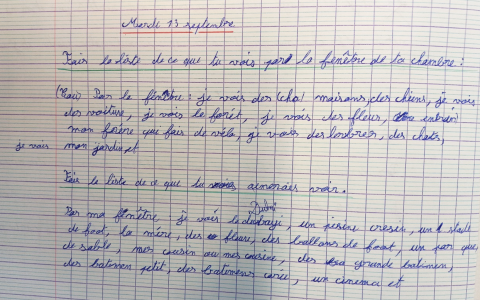 Mardi 13 septembre
Fais la liste de ce que tu vois par la fenêtre de ta chambre :
Par ma fenêtre : je vois des maisons, des chiens, je vois
des voiture, je vois la forêt, je vois des fleur,
mon frère que fais de vélo, je vois des , des chats,
je vois mon jardin, et
Fais la liste de ce que tu aimerais voir.
Par ma fenêtre je vois le Dubaï, un pisine creusin, un stade
de foot, la mère, des fleure, des ballons de foot, un par que
de sable, mes cousin ou mes cousine, des grande batimen,
des batimen petit, des batimens carée, un cinema et